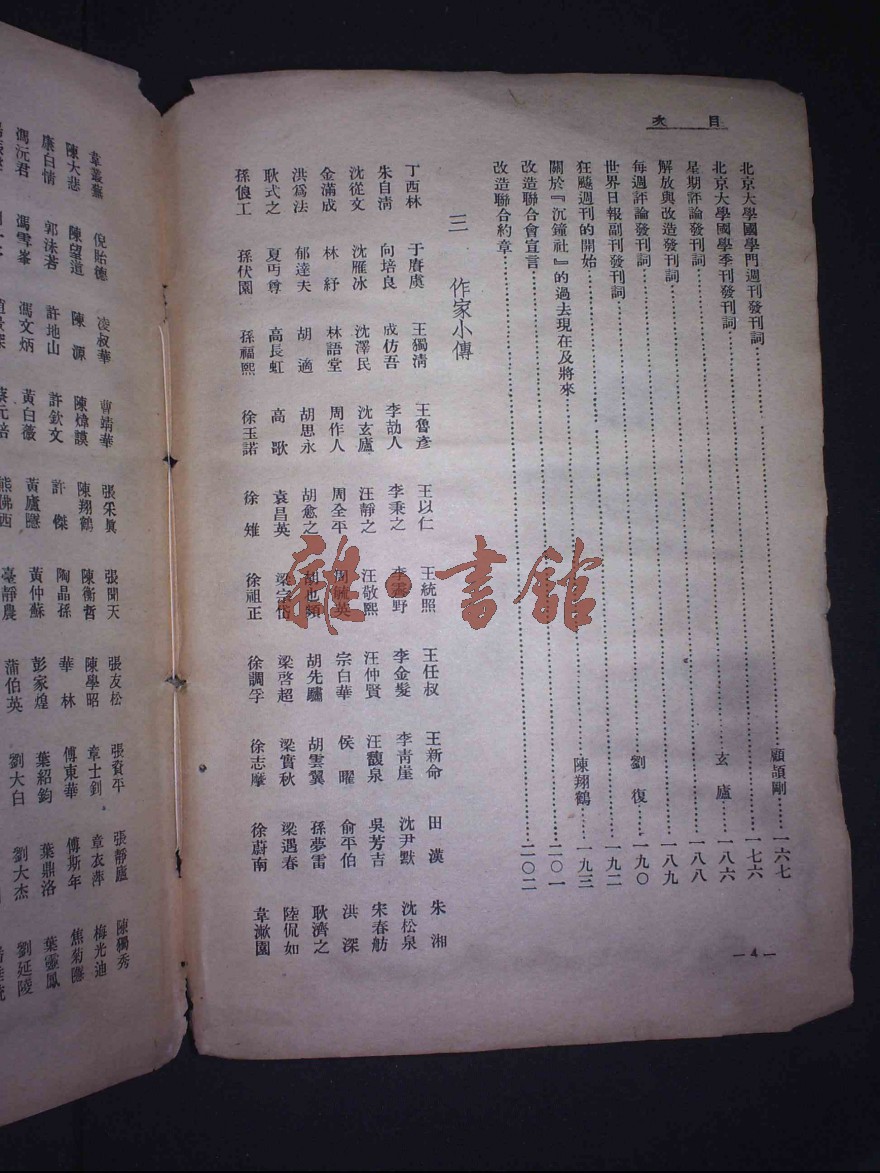 目次
北京大學國學門週刊發刊詞……顧頡剛……一六七
北京大學國學季刊發刊詞……一七六
星期評論發刊詞……玄廬……一八六
解放與改造發刊詞……一八八
每週評論發刊詞……一八九
世界日報副刊發刊詞……劉復……一九〇
狂飈週刊的開始……一九二
關於『沉鐘社』的過去現在及將來……陳翔鶴……一九三
改造聯合會宣言……二〇一
改造聯合約章……二〇二
三 作家小傳
丁西林 于賡虞 王獨淸 王魯彥 王以仁 王統照 王任叔 王新命 田漢 朱湘
朱自淸 向培良 成仿吾 李劼人 李秉之 李霽野 李金髮 李靑崖 沈尹默 沈松泉
沈從文 沈雁冰 沈澤民 沈玄廬 汪靜之 汪敬熙 汪仲賢 汪馥泉 吳芳吉 宋春舫
金滿成 林紓 林語堂 周作人 周全平 周毓英 宗白華 侯曜 俞平伯 洪深
洪爲法 郁達夫 胡適 胡思永 胡愈之 胡也頻 胡先驌 胡雲翼 孫夢雷 耿濟之
耿式之 夏丏尊 高長虹 高歌 袁昌英 梁宗岱 梁啓超 梁實秋 梁遇春 陸侃如
孫俍工 孫伏園 孫福熙 徐玉諾 徐雉 徐祖正 徐調孚 徐志摩 徐蔚南 韋漱園
—4—
韋叢蕪 倪貽德 凌叔華 曹靖華 張采眞 張聞天 張友松 張資平 張靜廬 陳獨秀
陳大悲 陳望道 陳源 陳煒謨 陳翔鶴 陳衡哲 陳學昭 章士釗 章衣萍 梅光迪
康白情 郭沫若 許地山 許欽文 許傑 陶晶孫 華林 傅東華 傅斯年 焦菊隱
馮沅君 馮雪峯 馮文炳 黃白薇 黃廬隱 黃仲蘇 彭家煌 葉紹鈞 葉鼎洛 葉靈鳳
蔡元培 熊佛西 臺靜農 蒲伯英 劉大白 劉大杰 劉延陵
雜·書館